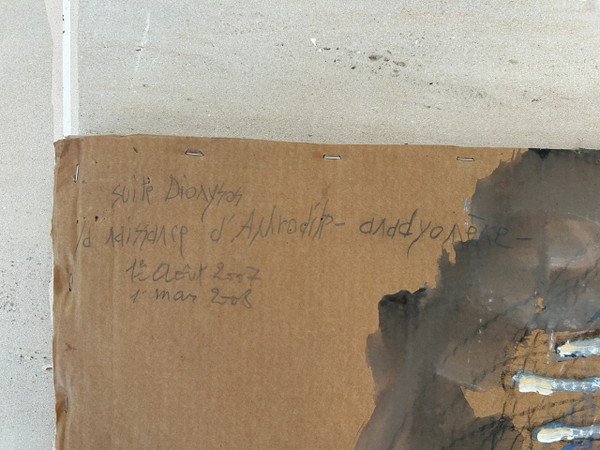 suite Dionysos
la naissance d'Aphrodite - anadyomène -
1er Août 2007
1er mars 2008